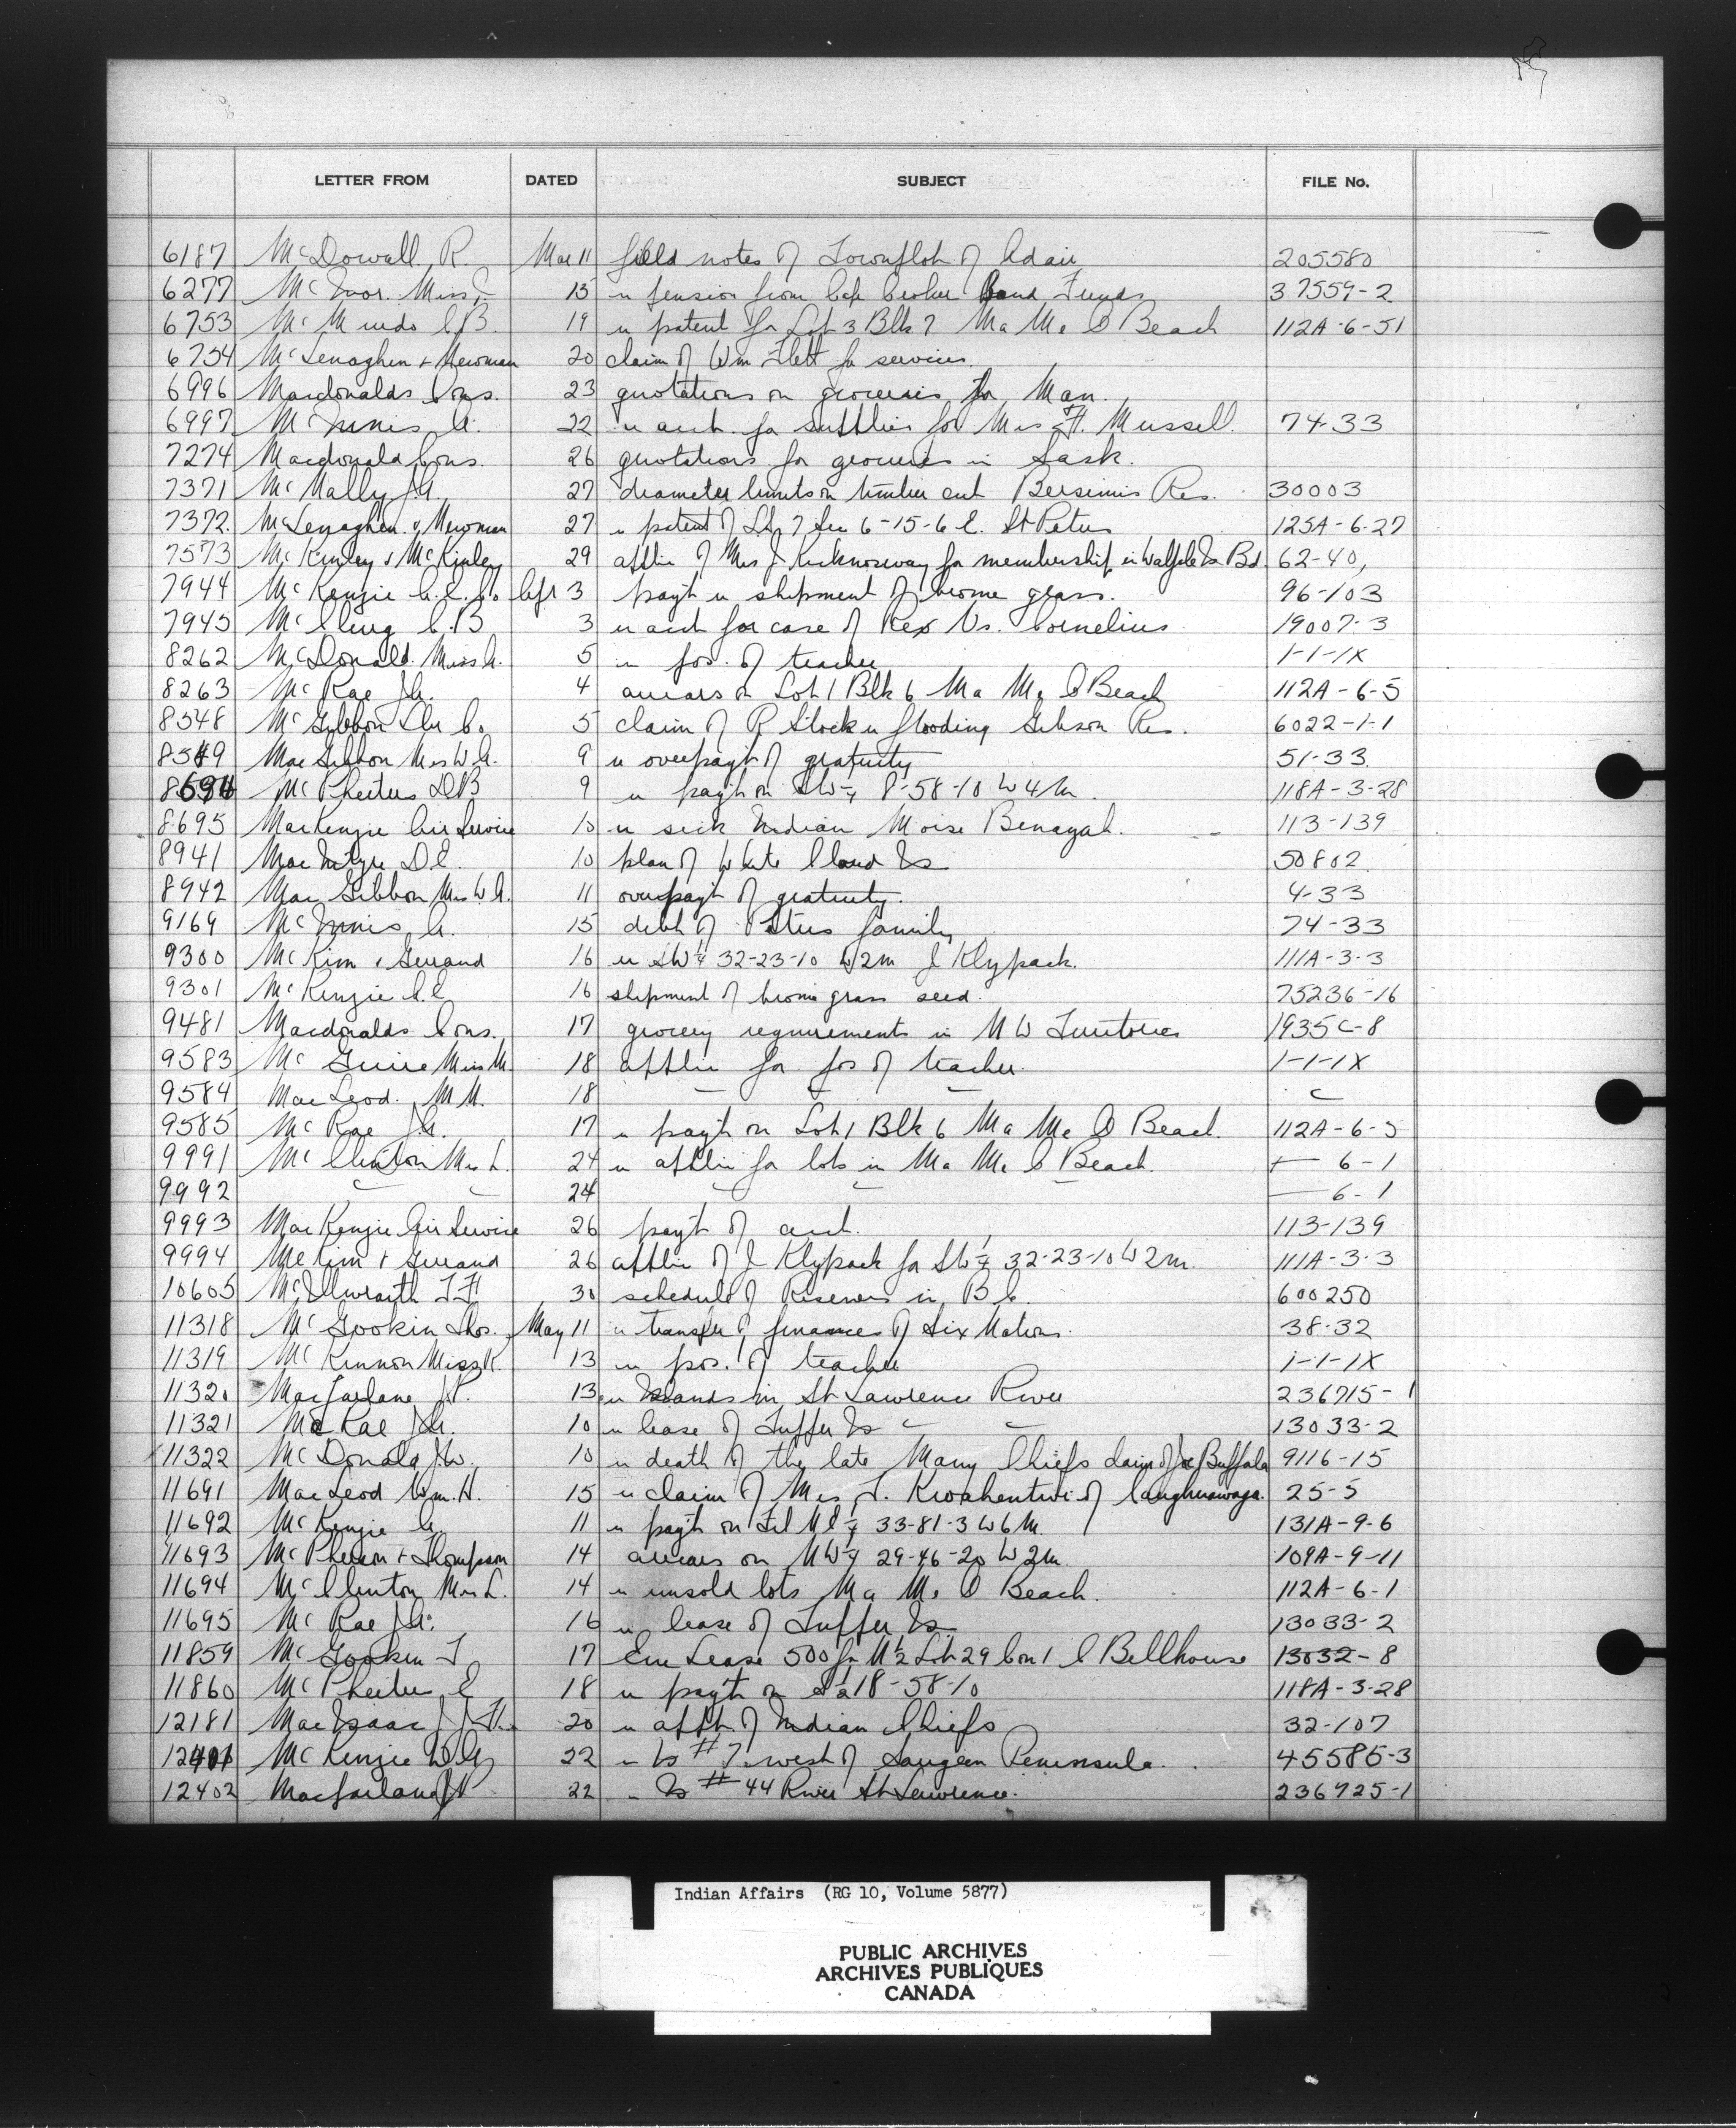 LETTER FROM DATED SUBJECT FILE No.
6187 McDowall R. Mar 11 field notes of Townplot of Adair 205580
6277 McIvor Miss 13 re pension from Cape Croker Band Funds 37559-2
6753 McMurdo C.B. 19 re patent for Lot 3 Blk 7 Ma Me O Beach 112A-6-51
6754 McLenaghen & Newman 20 claim of Wm Flett for services
6996 Macdonalds Cons. 23 quotations on groceries for Man.
6997 McInnis A. 22 re acct. for supplies for Mrs H. Mussell. 74-33
7274 Macdonald Cons. 26 quotations for groceries in Sask.
7371 McNally J.A. 27 diameter limits on timber cut Bersimis Res. 30003
7372 McLenaghen & Newman 27 re patent of Lot 7 Sec 6-15-6 E. St Peters 125A-6-27
7573 McKinley & McKinley 29 applin of Mrs J. Kicknosway for membership in Walpole Is Bd 62-40,
7944 McKenzie A.E. Co Apr 3 payt re shipment of brome grass. 96-103
7945 McClung C.B 3 re acct for case of Rex Vs. Cornelius 19007-3
8262 McDonald Miss A. 5 re pos. of teacher 1-1-1X
8263 McRae J.A. 4 arrears on Lot 1 Blk 6 Ma Me O Beach 112A-6-5
8548 McGibbon Lbr Co 5 claim of R Stock re flooding Gibson Res. 6022-1-1
8549 MacGibbon Mrs W.A. 9 re overpayt of gratuity 51-33
8694 McPheeters D.B 9 re payt on SW¼ 8-58-10 W4M. 118A-3-28
8695 MacKenzie Air Service 10 re sick Indian Moise Benayah. 113-139
8941 MacIntyre D.E. 10 plan of White Cloud Is 50802
8942 MacGibbon Mrs W.A. 11 overpayt of gratuity. 4-33
9169 McInnis A. 15 debt of Peters family 74-33
9300 McKim & Gerrand 16 re SW¼ 32-23-10 W2M J Klypack. 111A-3-3
9301 McKenzie A.E. 16 shipment of brome grass seed. 75236-16
9481 Macdonalds Cons. 17 grocery requirements in N W Territories 1935C-8
9583 McGuire Miss M. 18 applin for pos of teacher. 1-1-1X
9584 MacLeod. M M. 18
9585 McRae J.A. 17 re payt on Lot 1 Blk 6 Ma Me O Beach. 112A-6-5
9991 McClinton Mrs L. 24 re applin for lots in Ma Me O Beach. — 6-1
9992 24 — 6-1
9993 MacKenzie Air Service 26 payt of acct. 113-139
9994 McKim & Gerrand 26 applin of J Klypack for SW¼ 32-23-10 W2M. 111A-3-3
10605 McIlwraith T.F. 30 schedule of Reserves in B.C. 600250
11318 McGookin Thos. May 11 re transfer of finances of Six Nations. 38-32
11319 McKinnon Miss K. 13 re pos. of teacher 1-1-1X
11320 Macfarlane J.P. 13 re Islands in St Lawrence River 236715-1
11321 McRae J.A. 10 re lease of Tuffer Is 13033-2
11322 McDonald J.W. 10 re death of the late Many Chiefs claim of Joe Buffalo 9116-15
11691 MacLeod Wm. H. 15 re claim of Mrs J. Kwahentwi of Caughnawaga. 25-5
11692 McKenzie A. 11 re payt on NE¼ 33-81-3 W6M. 131A-9-6
11693 McPherson & Thompson 14 arrears on NW¼ 29-46-20 W2M. 109A-9-11
11694 McClinton Mrs L. 14 re unsold lots Ma Me O Beach. 112A-6-1
11695 McRae J.A. 16 re lease of Tuffer Is 13033-2
11859 McGookin T 17 Lease 500 for N½ Lot 29 Con 1 C Bellhouse 13032-8
11860 McPheeters E 18 re payt on S½ 18-58-10 118A-3-28
12181 MacIsaac J.J. 20 re appt of Indian Chiefs 32-107
12401 McKenzie D.G. 22 - Is #7 west of Saugeen Peninsula. 45585-3
12402 Macfarlane J.P 22 - Is #44 River St Lawrence. 236725-1
Indian Affairs (RG 10, Volume 5877)
PUBLIC ARCHIVES
ARCHIVES PUBLIQUES
CANADA